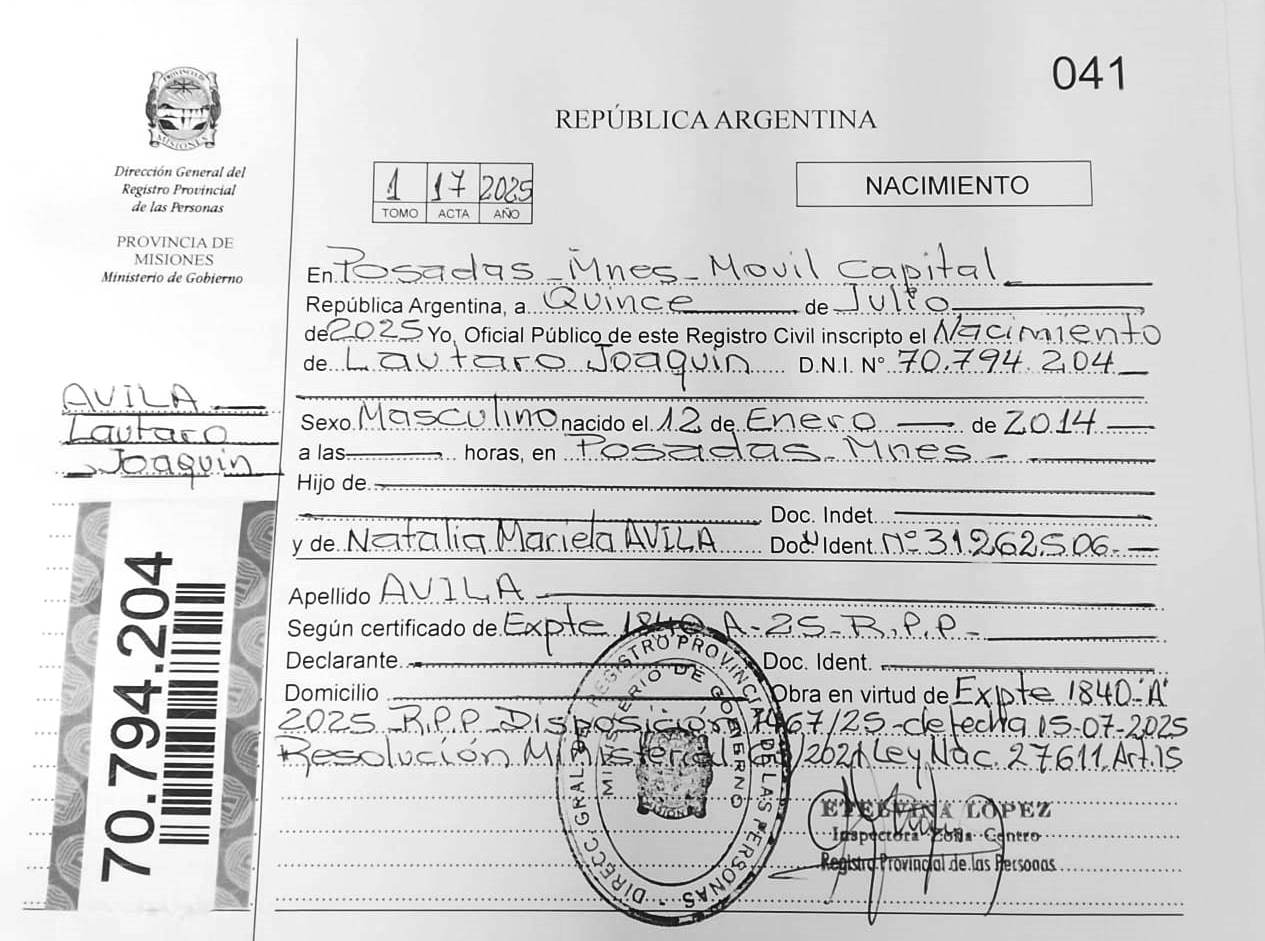 041
PROVINCIA D
MISIONES
Dirección General del
Registro Provincial
de las Personas
PROVINCIA DE
MISIONES
Ministerio de Gobierno
REPÚBLICA ARGENTINA
1 17 2025
TOMO ACTA AÑO
NACIMIENTO
En Posadas - Mnes - Movil Capital
República Argentina, a Quince de Julio
de 2025 Yo, Oficial Público de este Registro Civil inscripto el Nacimiento
de Lautaro Joaquin D.N.I. N° 70.794.204
AVILA
Lautaro
Joaquin
Sexo Masculino nacido el 12 de Enero de 2014
a las horas, en Posadas - Mnes -
Hijo de
Doc. Indet.
y de Natalia Mariela AVILA Doc. Ident. N° 31.262.506.
Apellido AVILA
Según certificado de Expte 1840 A-25-R.P.P-
Declarante Doc. Ident.
Domicilio Obra en virtud de Expte 1840-"A"
2025 R.P.P Disposición 1467/25 de fecha 15-07-2025
Resolución Ministerial /2021 Ley Nac. 27611 Art.15
70.794.204
DIRECC GRAL DE REGISTRO PROVINCIAL DE LAS PERSONAS
MINISTERIO DE GOBIERNO
ETELVINA LOPEZ
Inspectora Zona Centro
Registro Provincial de las Personas